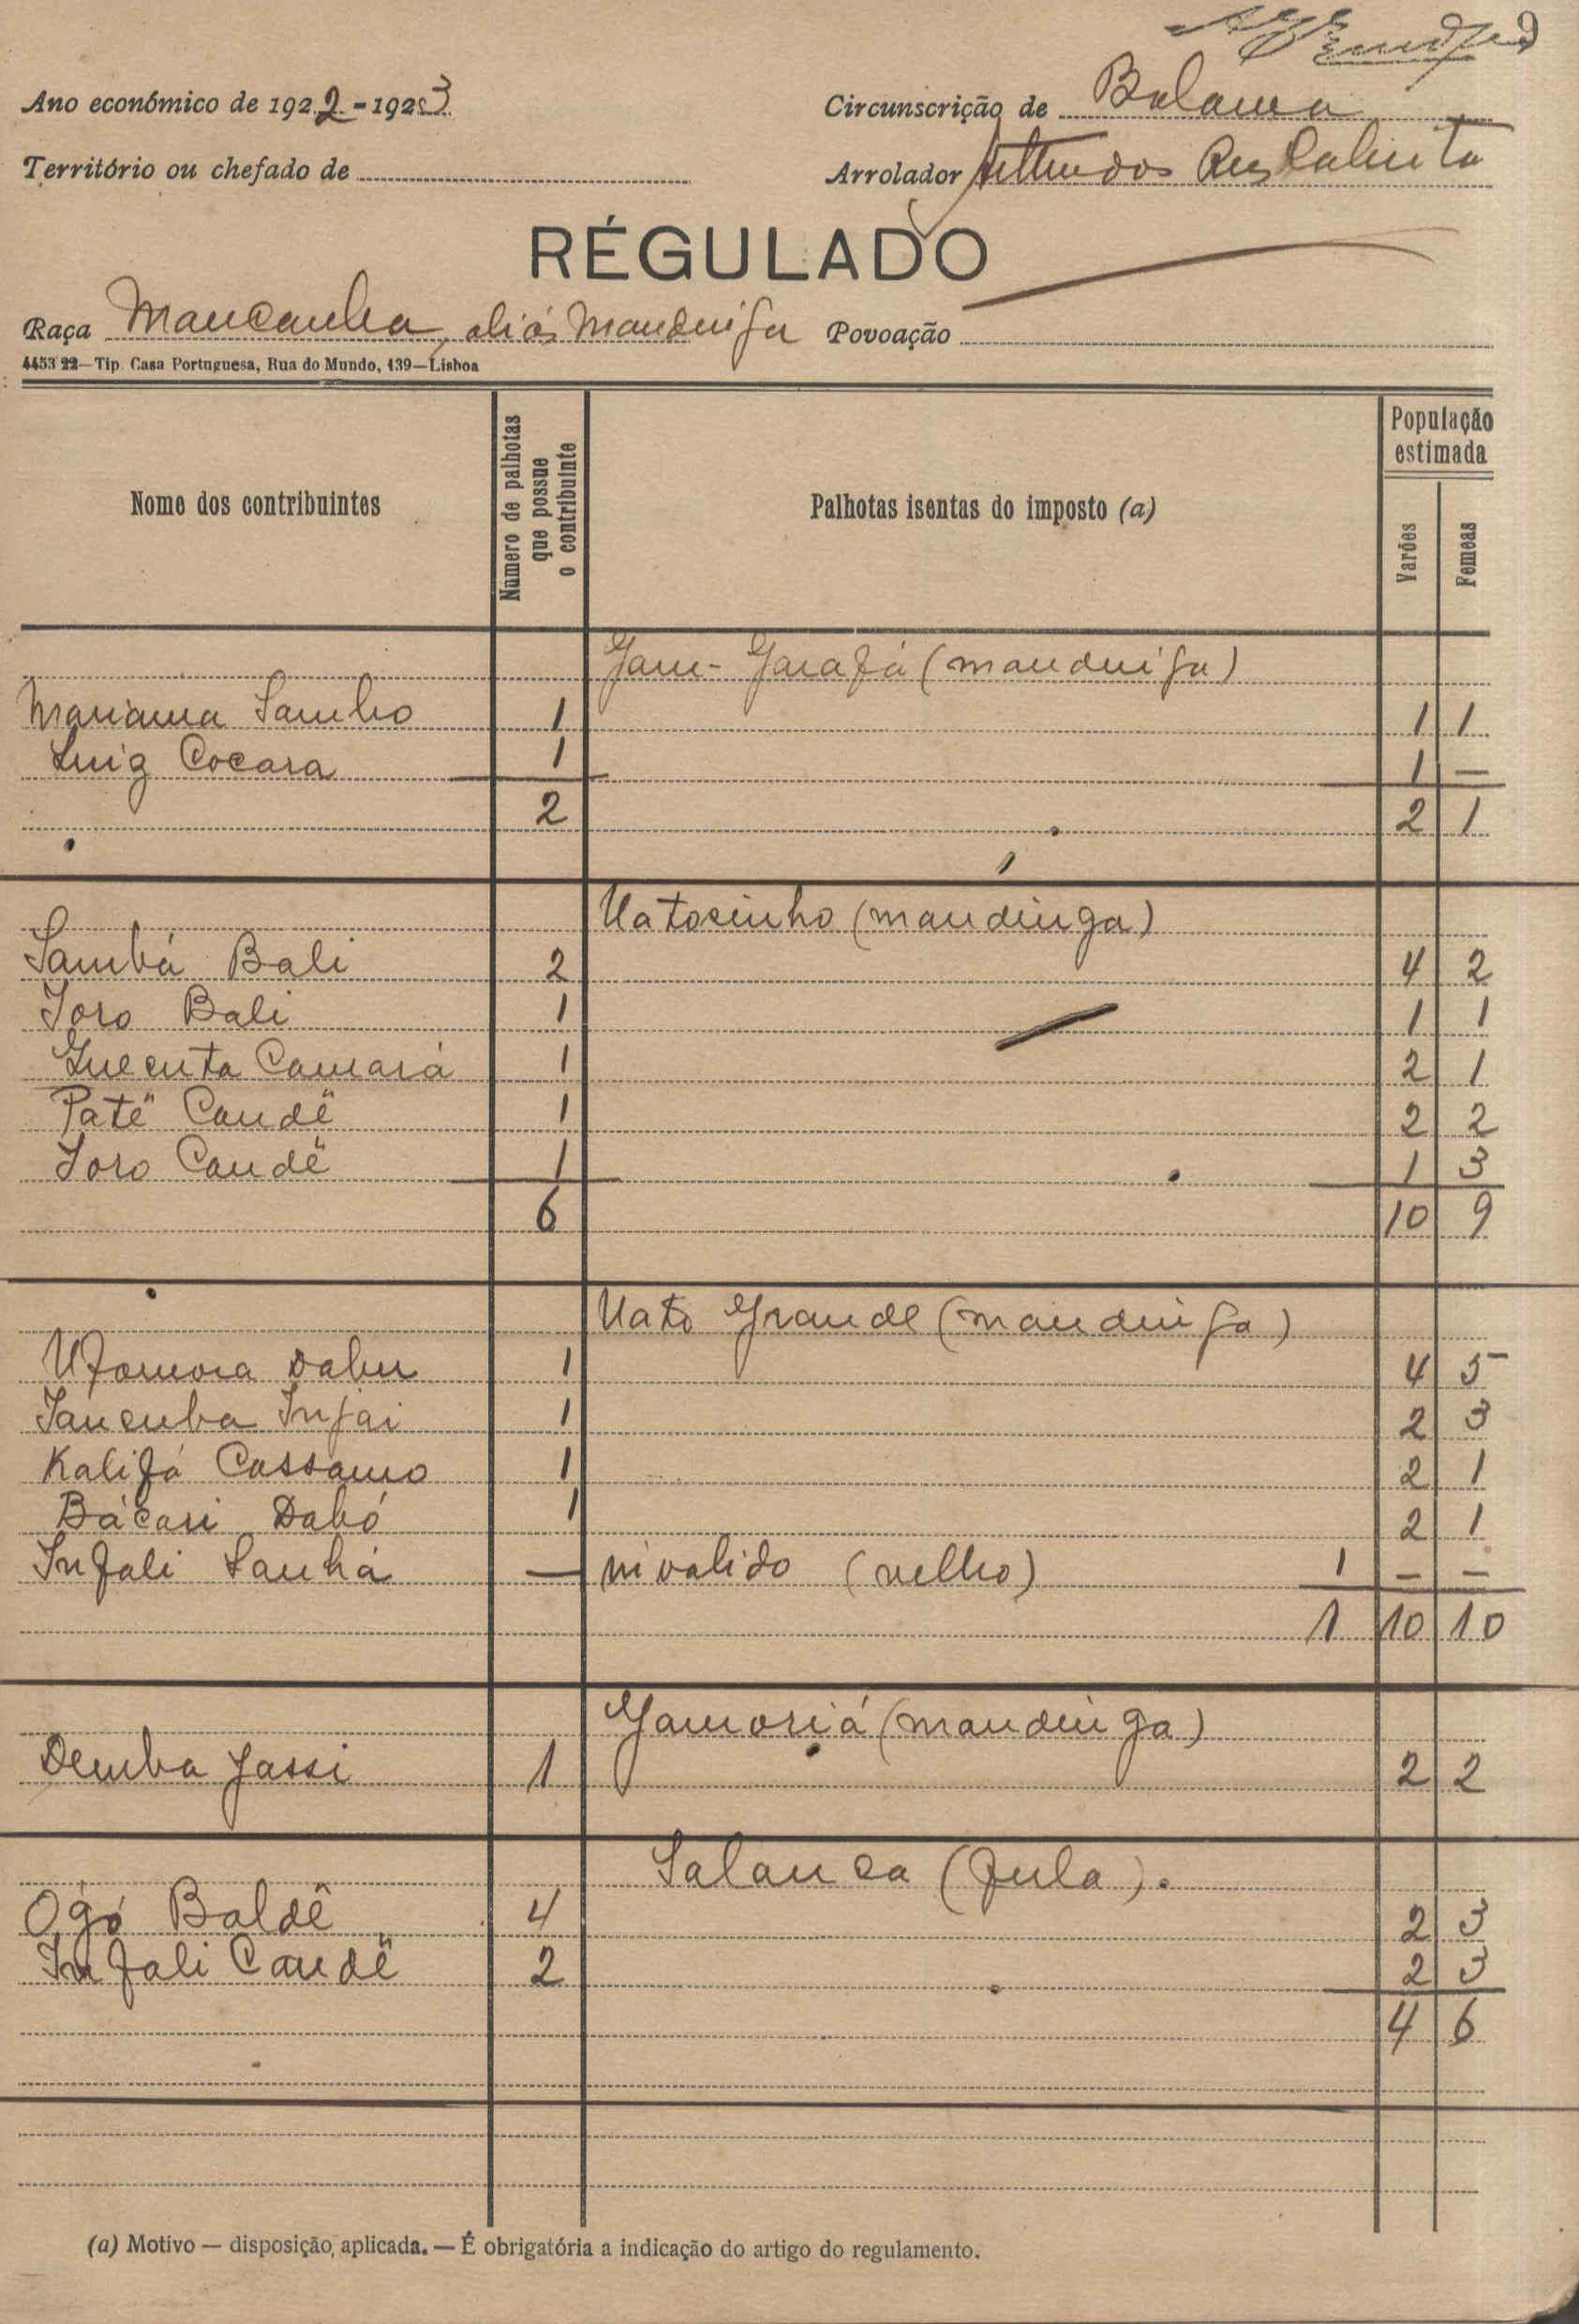 Ano económico de 1922-1923
Circunscrição de Bolama
Território ou chefado de
Arrolador dos
RÉGULADO
Raça Mancanha, aliás Mandinga Povoação
4453 22—Tip. Casa Portuguesa, Rua do Mundo, 139—Lisboa
Nome dos contribuintes
Número de palhotas que possue o contribuinte
Palhotas isentas do imposto (a)
População estimada
Varões
Femeas
Gam-Garafá (mandinga)
Mariama Sambo 1 1 1
Luiz Cocara 1 1 —
2 2 1
Uatosinho (mandinga)
Sambá Bali 2 4 2
Joro Bali 1 1 1
Camará 1 2 1
Patê Candê 1 2 2
Joro Candê 1 1 3
6 10 9
Uato Grande (mandinga)
1 4 5
Injai 1 2 3
Kalifá Cassamo 1 2 1
Bácari Dabó 1 2 1
Infali Sanhá — invalido (velho) 1 — —
1 10 10
Gamoriá (mandinga)
Demba Jassi 1 2 2
Salanca (fula).
Ogó Baldê 4 2 3
Infali Candê 2 2 3
4 6
(a) Motivo — disposição, aplicada. — É obrigatória a indicação do artigo do regulamento.